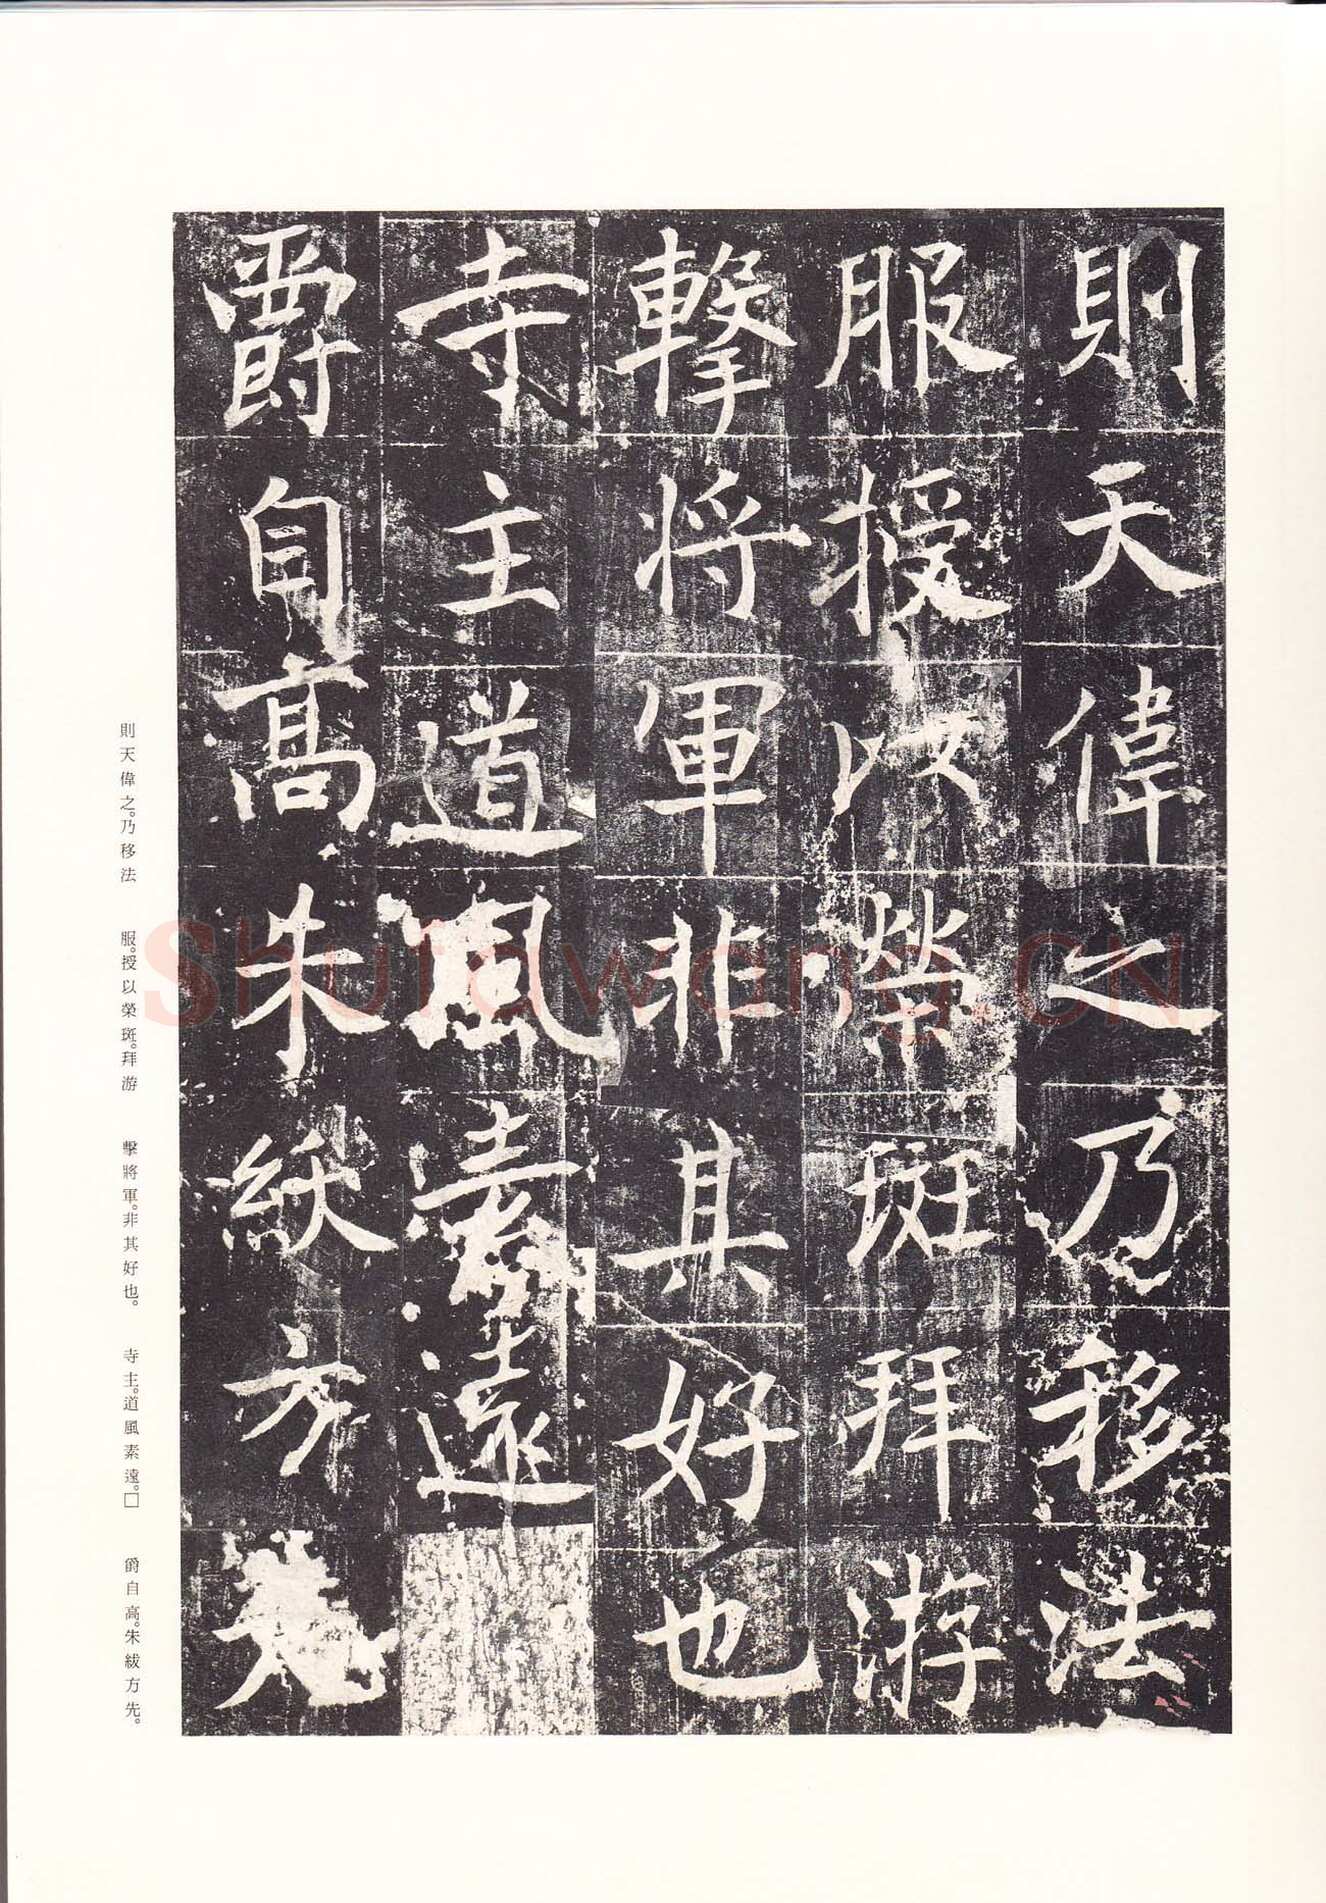 則天偉之乃移法
服授以榮斑拜游
擊将軍非其好也
寺主道風素遠
爵自高朱紱方先
則天偉之。乃移法 服。授以榮斑。拜游 擊將軍。非其好也。 寺主。道風素遠。□ 爵自高。朱紱方先。
Shufawang.CN